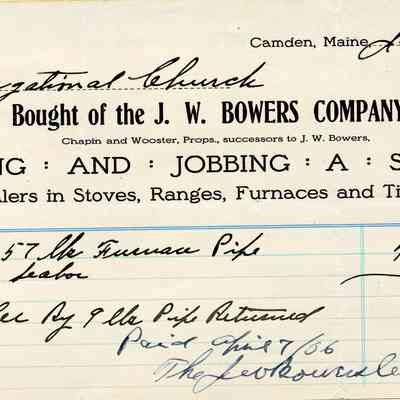 Camden, Maine,
gational Church
Bought of the J. W. BOWERS COMPANY
Chapin and Wooster, Props., successors to J. W. Bowers,
NG : AND : JOBBING : A : S
lers in Stoves, Ranges, Furnaces and Ti
57 lbs Furnace Pipe
Labor
By 9 lbs Pipe Returned
Paid April 7/06
The J W Bowers Co